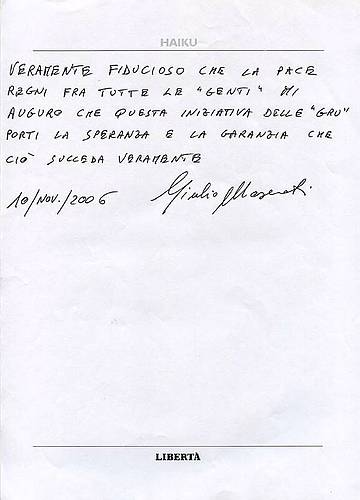 HAIKU
VERAMENTE FIDUCIOSO CHE LA PACE
REGNI FRA TUTTE LE "GENTI" MI
AUGURO CHE QUESTA INIZIATIVA DELLE "GRU"
PORTI LA SPERANZA E LA GARANZIA CHE
CIÒ SUCCEDA VERAMENTE
10/NOV./2006 Giulio
LIBERTÀ